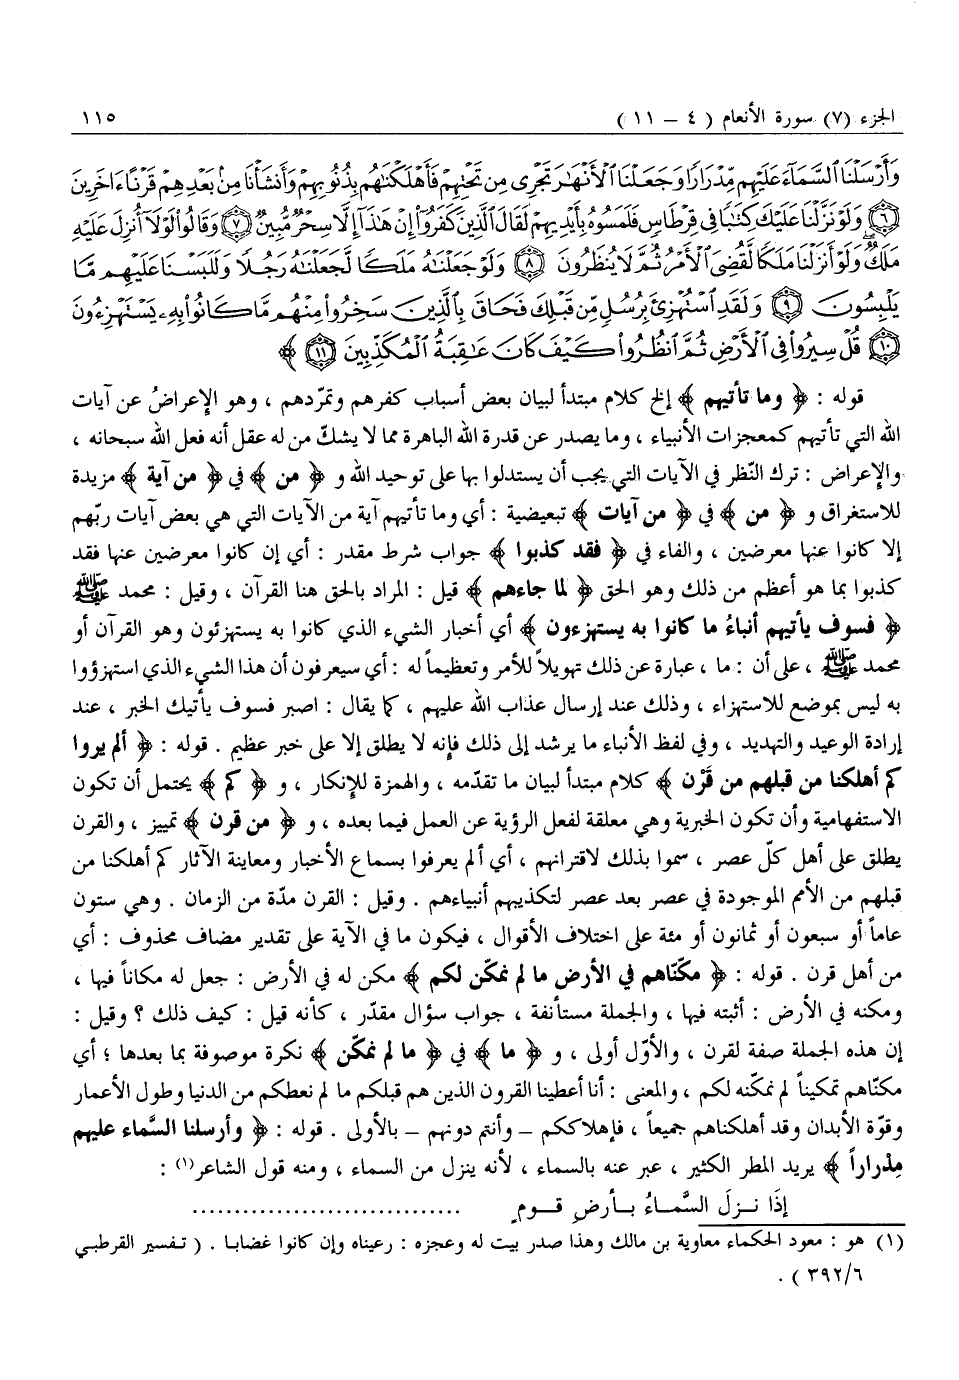 الجزء (٧) سورة الأنعام ( ٤ – ١١ ) ١١٥
وَأَرْسَلْنَا ٱلسَّمَآءَ عَلَيْهِم مِّدْرَارًا وَجَعَلْنَا ٱلْأَنْهَـٰرَ تَجْرِى مِن تَحْتِهِمْ فَأَهْلَكْنَـٰهُم بِذُنُوبِهِمْ وَأَنشَأْنَا مِنۢ بَعْدِهِمْ قَرْنًا ءَاخَرِينَ
﴿٦﴾ وَلَوْ نَزَّلْنَا عَلَيْكَ كِتَـٰبًا فِى قِرْطَاسٍ فَلَمَسُوهُ بِأَيْدِيهِمْ لَقَالَ ٱلَّذِينَ كَفَرُوٓا۟ إِنْ هَـٰذَآ إِلَّا سِحْرٌ مُّبِينٌ ﴿٧﴾ وَقَالُوا۟ لَوْلَآ أُنزِلَ عَلَيْهِ
مَلَكٌ ۖ وَلَوْ أَنزَلْنَا مَلَكًا لَّقُضِىَ ٱلْأَمْرُ ثُمَّ لَا يُنظَرُونَ ﴿٨﴾ وَلَوْ جَعَلْنَـٰهُ مَلَكًا لَّجَعَلْنَـٰهُ رَجُلًا وَلَلَبَسْنَا عَلَيْهِم مَّا
يَلْبِسُونَ ﴿٩﴾ وَلَقَدِ ٱسْتُهْزِئَ بِرُسُلٍ مِّن قَبْلِكَ فَحَاقَ بِٱلَّذِينَ سَخِرُوا۟ مِنْهُم مَّا كَانُوا۟ بِهِۦ يَسْتَهْزِءُونَ
﴿١٠﴾ قُلْ سِيرُوا۟ فِى ٱلْأَرْضِ ثُمَّ ٱنظُرُوا۟ كَيْفَ كَانَ عَـٰقِبَةُ ٱلْمُكَذِّبِينَ ﴿١١﴾ ﴾
قوله : ﴿ وما تأتيهم ﴾ إلخ كلام مبتدأ لبيان بعض أسباب كفرهم وتمرّدهم ، وهو الإعراضُ عن آيات
الله التي تأتيهم كمعجزات الأنبياء ، وما يصدر عن قدرة الله الباهرة مما لا يشكّ من له عقل أنه فعل الله سبحانه ،
والإعراض : ترك النّظر في الآيات التي يجب أن يستدلوا بها على توحيد الله و ﴿ من ﴾ في ﴿ من آية ﴾ مزيدة
للاستغراق و ﴿ من ﴾ في ﴿ من آيات ﴾ تبعيضية : أي وما تأتيهم آية من الآيات التي هي بعض آيات ربّهم
إلا كانوا عنها معرضين ، والفاء في ﴿ فقد كذبوا ﴾ جواب شرط مقدر : أي إن كانوا معرضين عنها فقد
كذبوا بما هو أعظم من ذلك وهو الحق ﴿ لما جاءهم ﴾ قيل : المراد بالحق هنا القرآن ، وقيل : محمد ﷺ
﴿ فسوف يأتيهم أنباءُ ما كانوا به يستهزءون ﴾ أي أخبار الشيء الذي كانوا به يستهزئون وهو القرآن أو
محمد ﷺ ، على أن : ما ، عبارة عن ذلك تهويلاً للأمر وتعظيماً له : أي سيعرفون أن هذا الشيء الذي استهزؤوا
به ليس بموضع للاستهزاء ، وذلك عند إرسال عذاب الله عليهم ، كما يقال : اصبر فسوف يأتيك الخبر ، عند
إرادة الوعيد والتهديد ، وفي لفظ الأنباء ما يرشد إلى ذلك فإنه لا يطلق إلا على خبر عظيم . قوله : ﴿ ألم يروا
كم أهلكنا من قبلهم من قَرْن ﴾ كلام مبتدأ لبيان ما تقدّمه ، والهمزة للإنكار ، و ﴿ كم ﴾ يحتمل أن تكون
الاستفهامية وأن تكون الخبرية وهي معلقة لفعل الرؤية عن العمل فيما بعده ، و ﴿ من قرن ﴾ تمييز ، والقرن
يطلق على أهل كلّ عصر ، سموا بذلك لاقترانهم ، أي ألم يعرفوا بسماع الأخبار ومعاينة الآثار كم أهلكنا من
قبلهم من الأمم الموجودة في عصر بعد عصر لتكذيبهم أنبياءهم . وقيل : القرن مدّة من الزمان . وهي ستون
عاماً أو سبعون أو ثمانون أو مئة على اختلاف الأقوال ، فيكون ما في الآية على تقدير مضاف محذوف : أي
من أهل قرن . قوله : ﴿ مكّناهم في الأرض ما لم نمكّن لكم ﴾ مكن له في الأرض : جعل له مكاناً فيها ،
ومكنه في الأرض : أثبته فيها ، والجملة مستأنفة ، جواب سؤال مقدّر ، كأنه قيل : كيف ذلك ؟ وقيل :
إن هذه الجملة صفة لقرن ، والأوّل أولى ، و ﴿ ما ﴾ في ﴿ ما لم نمكّن ﴾ نكرة موصوفة بما بعدها ؛ أي
مكنّاهم تمكيناً لم نمكّنه لكم ، والمعنى : أنا أعطينا القرون الذين هم قبلكم ما لم نعطكم من الدنيا وطول الأعمار
وقوّة الأبدان وقد أهلكناهم جميعاً ، فإهلاككم – وأنتم دونهم – بالأولى . قوله : ﴿ وأرسلنا السَّماء عليهم
مِدْراراً ﴾ يريد المطر الكثير ، عبر عنه بالسماء ، لأنه ينزل من السماء ، ومنه قول الشاعر(١) :
إذَا نـزلَ السَّمـاءُ بـأرضِ قـومٍ ................................
(١) هو : معود الحكماء معاوية بن مالك وهذا صدر بيت له وعجزه : رعيناه وإن كانوا غضابا . ( تفسير القرطبي
٣٩٢/٦ ) .